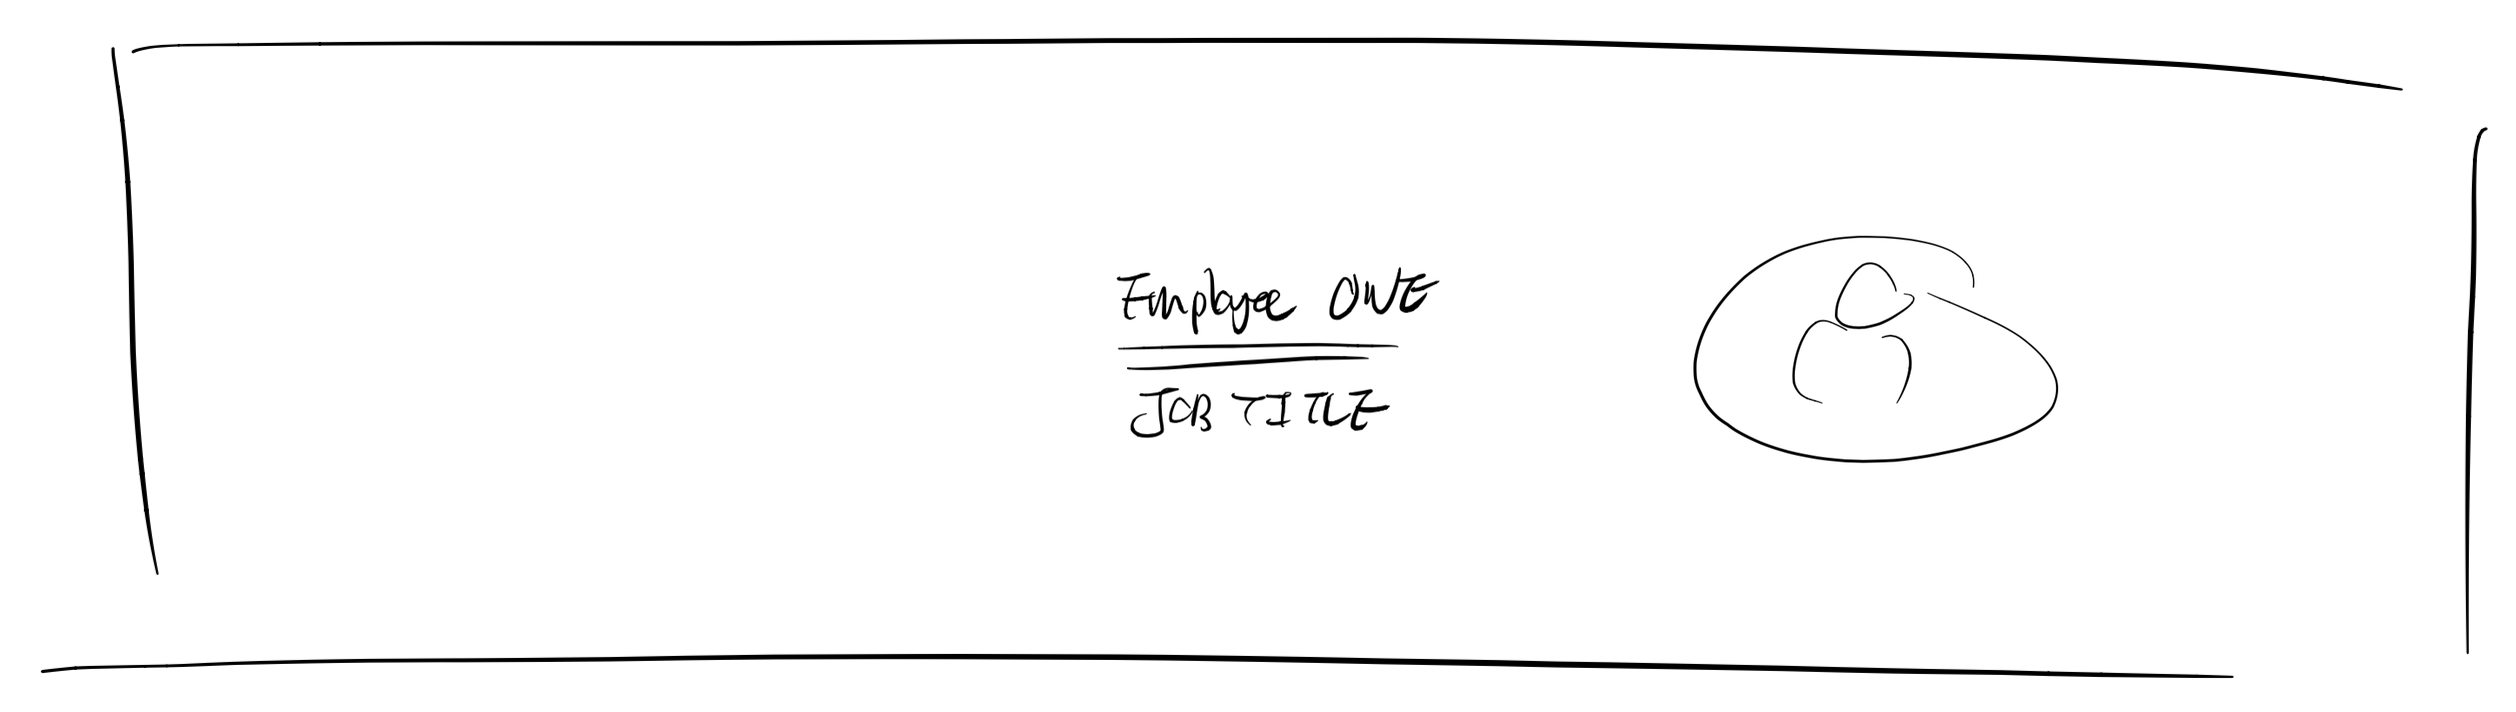 Employee
JOB TITLE